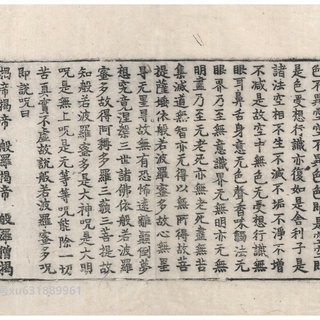 色不異空空不異色色即是空空即
是色受想行識亦復如是舍利子是
諸法空相不生不滅不垢不淨不增
不減是故空中無色無受想行識無
眼耳鼻舌身意无色聲香味觸法无
眼界乃至无意識界无無明亦无無
明盡乃至无老死亦無老死盡無苦
集滅道無智亦无得以無所得故菩
提薩埵依般若波羅蜜多故心無罣
㝵无罣㝵故無有恐怖遠離顛倒夢
想究竟涅槃三世諸佛依般若波羅
蜜多故得阿耨多羅三藐三菩提故
知般若波羅蜜多是大神呪是大明
呪是無上呪是无等等呪能除一切
苦真實不虛故說般若波羅蜜多呪
即說呪曰
揭帝揭帝 般羅揭帝 般羅僧揭
xu631889961